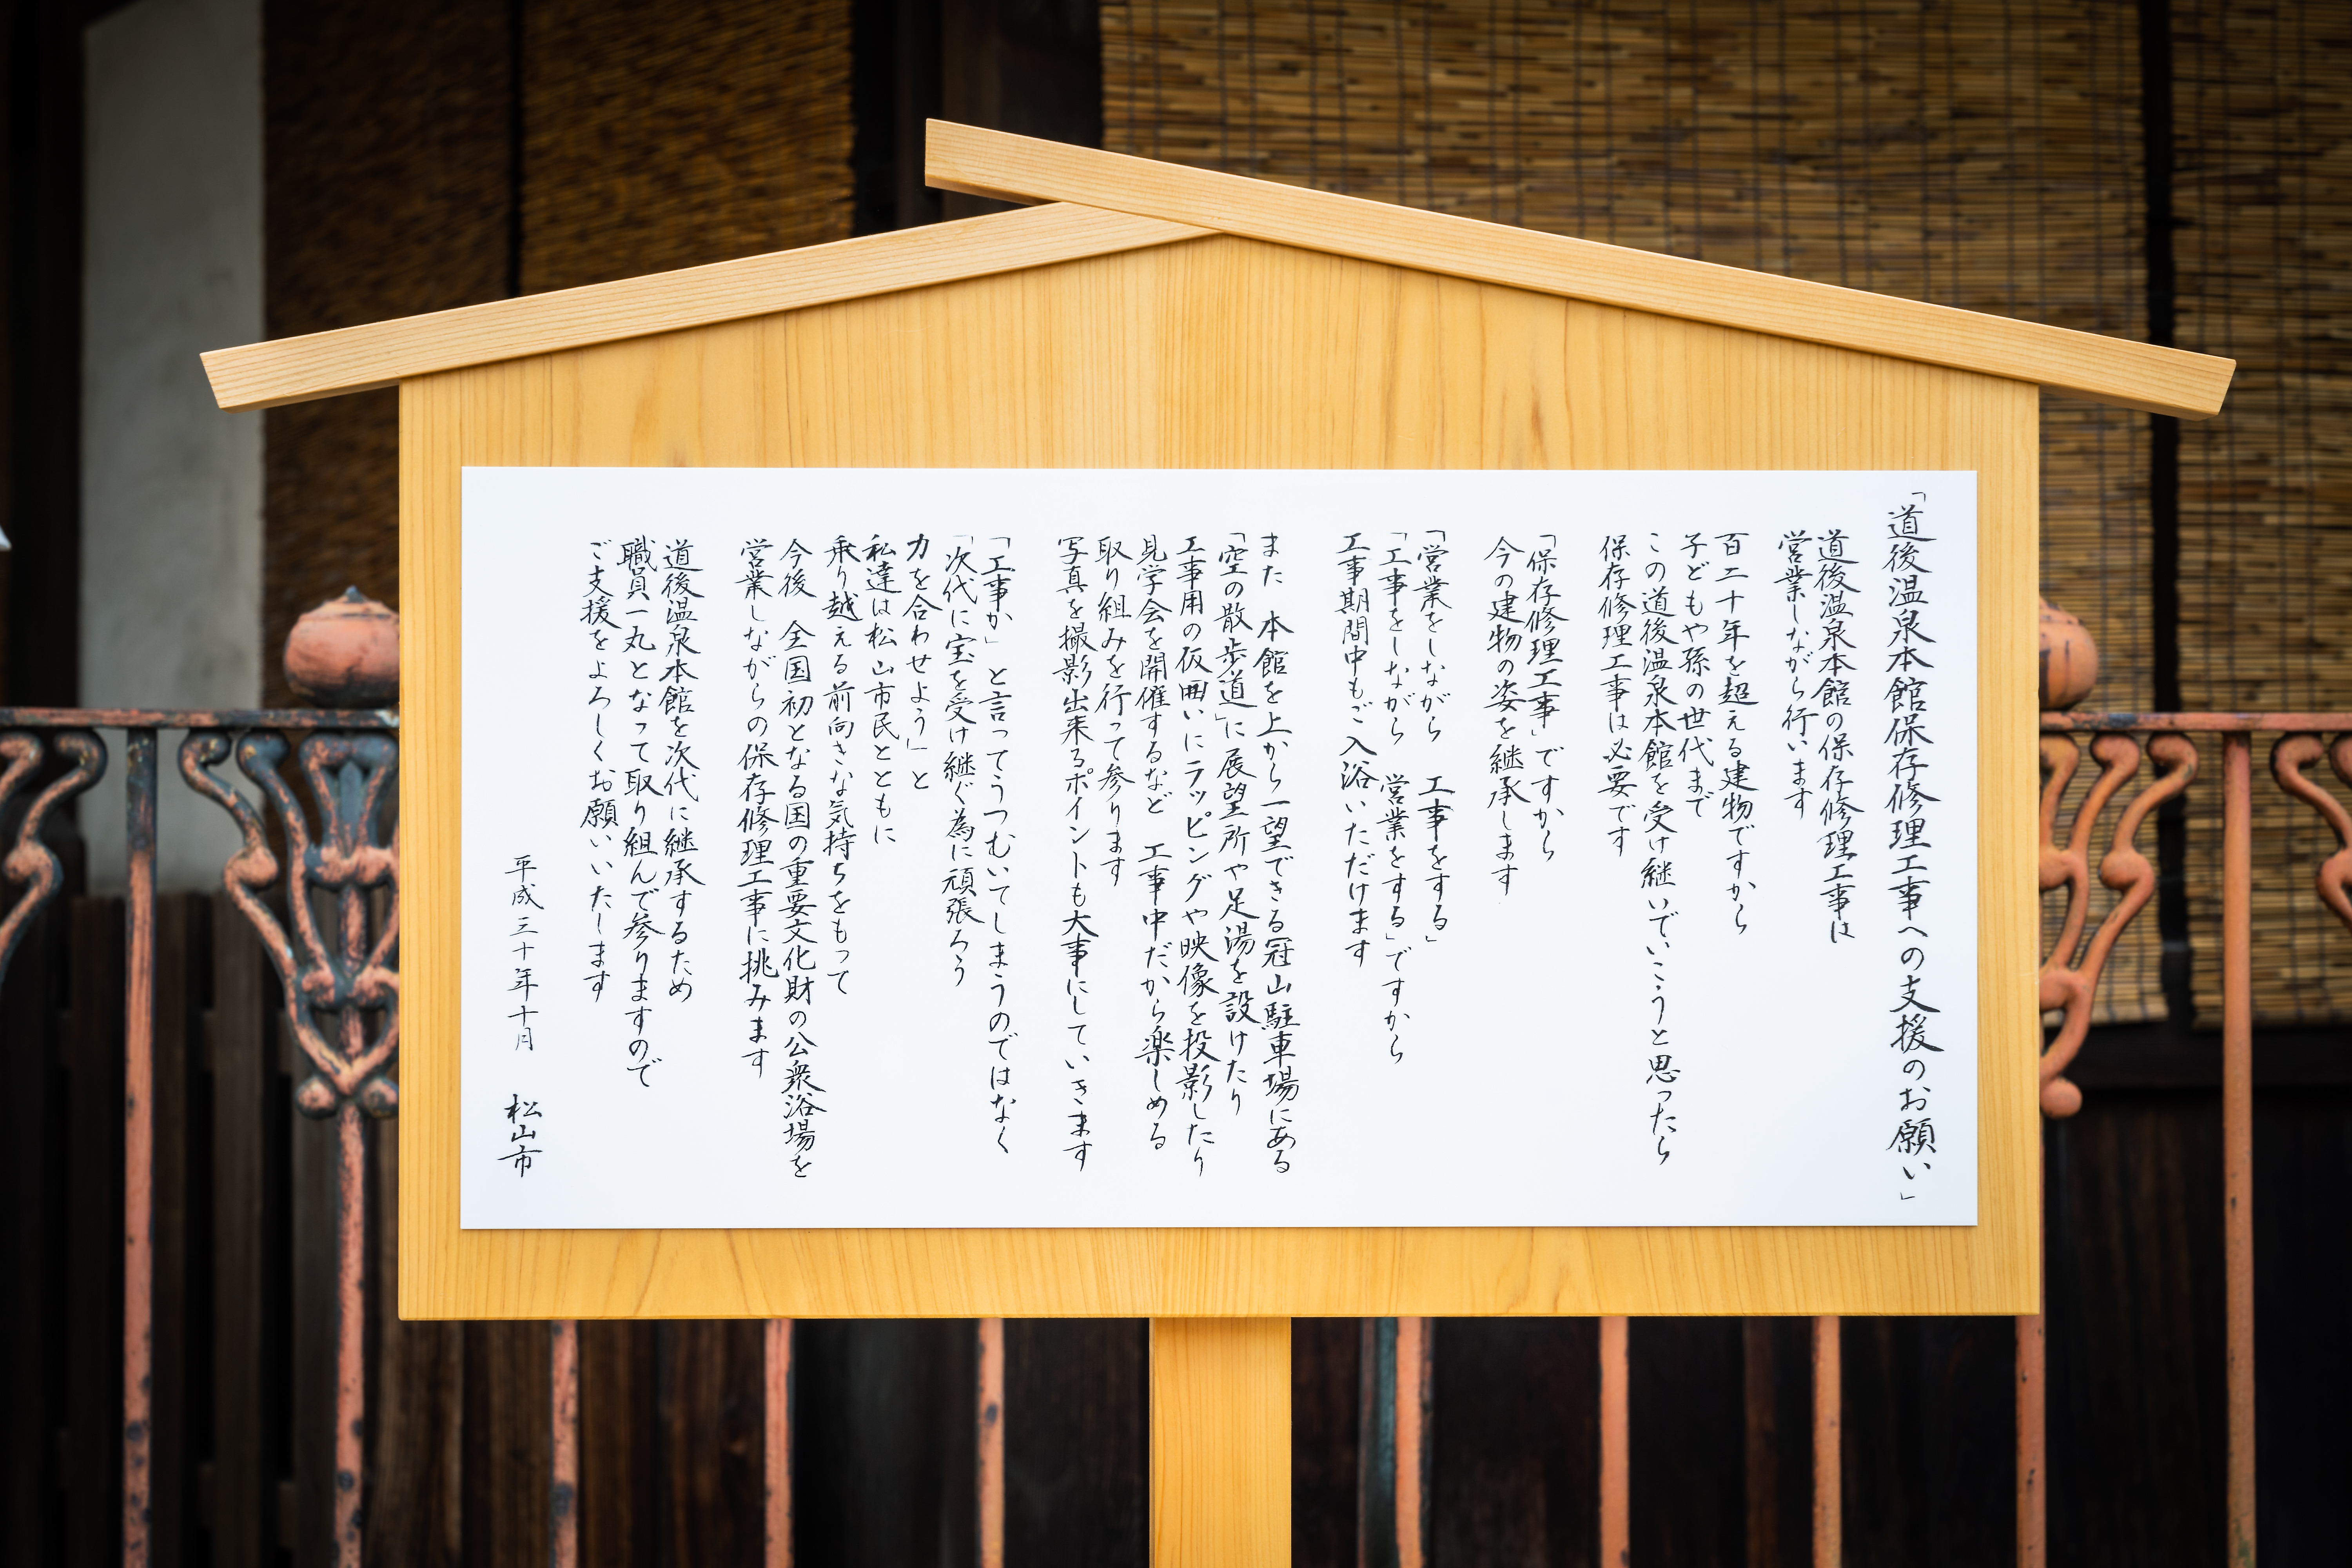 「道後温泉本館保存修理工事への支援のお願い」
道後温泉本館の保存修理工事は
営業しながら行います
百二十年を超える建物ですから
子どもや孫の世代まで
この道後温泉本館を受け継いでいこうと思ったら
保存修理工事は必要です
「保存修理工事」ですから
今の建物の姿を継承します
「営業をしながら 工事をする」
「工事をしながら 営業をする」ですから
工事期間中もご入浴いただけます
また 本館を上から一望できる冠山駐車場にある
「空の散歩道」に展望所や足湯を設けたり
工事用の仮囲いにラッピングや映像を投影したり
見学会を開催するなど 工事中だから楽しめる
取り組みを行って参ります
写真を撮影出来るポイントも大事にしていきます
「工事か」と言ってうつむいてしまうのではなく
「次代に宝を受け継ぐ為に頑張ろう
力を合わせよう」と
私達は松山市民とともに
乗り越える前向きな気持ちをもって
今後 全国初となる国の重要文化財の公衆浴場を
営業しながらの保存修理工事に挑みます
道後温泉本館を次代に継承するため
職員一丸となって取り組んで参りますので
ご支援をよろしくお願いいたします
平成三十年十月 松山市